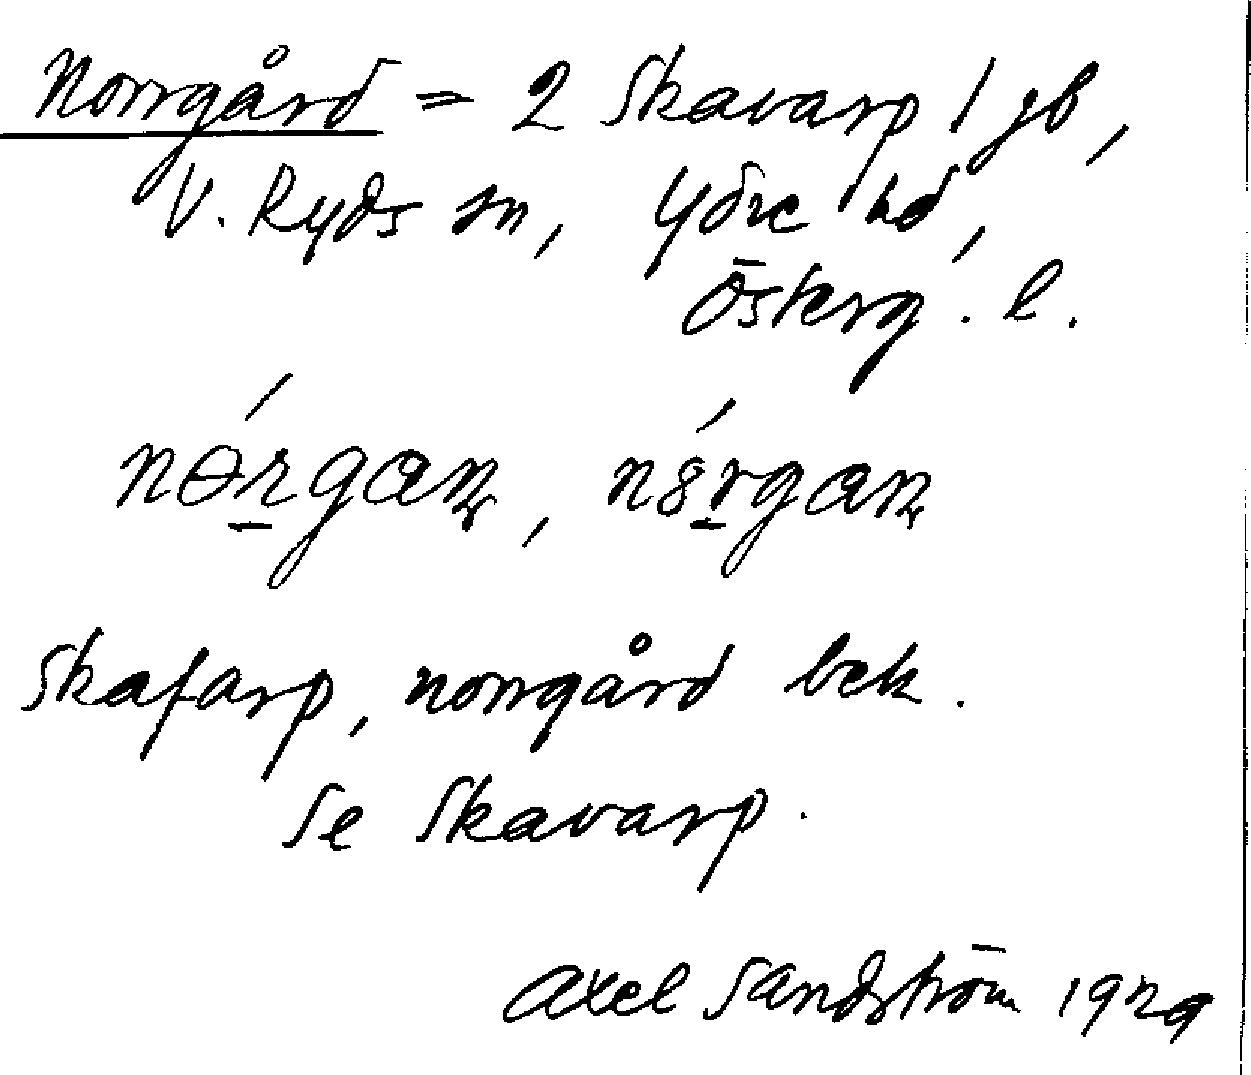 Norrgård = 2 Skavarp 1 jb,
V. Ryds sn, Ydre hd,
Österg. l.
Skafarp, norrgård bek.
Se Skavarp.
Axel Sandström 1929